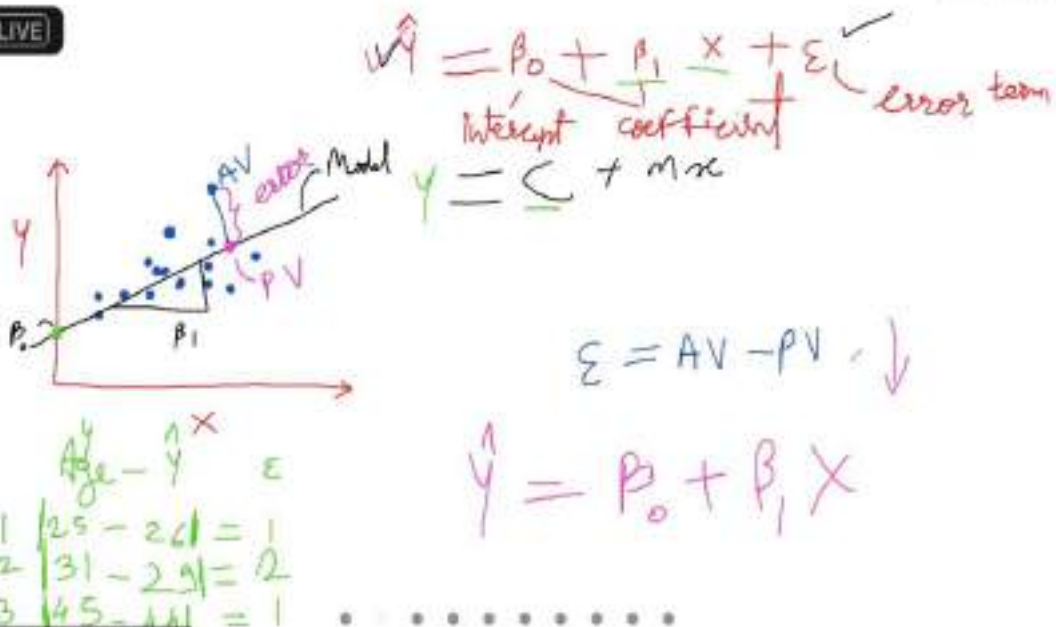 LIVE
Ŷ = β₀ + β₁ X + ε
error term
intercept coefficient
Y = C + mx
AV
error
Model
Y
PV
β₀
β₁
X
ε = AV - PV . ↓
Age y - Ŷ ε
Ŷ = β₀ + β₁ X
1 |25 - 26| = 1
2 |31 - 29| = 2
3 |45 - 44| = 1